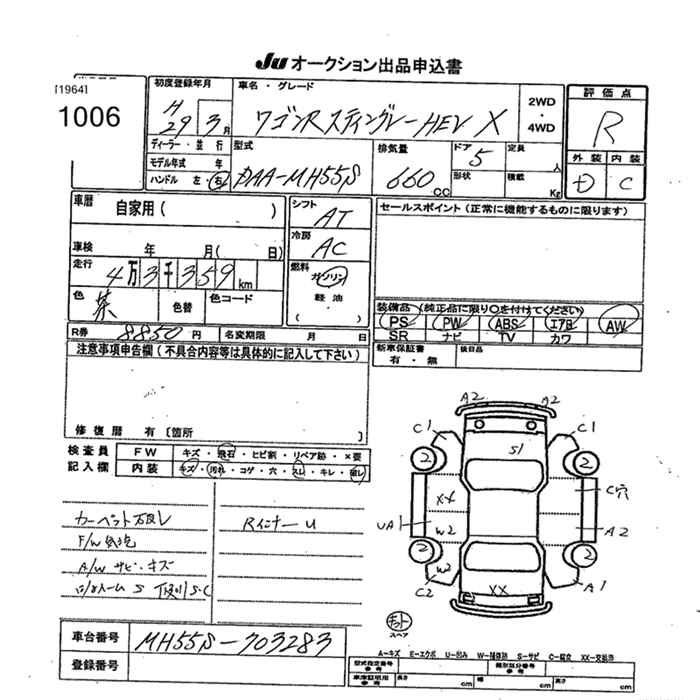 Ju オークション出品申込書
[1964]
1006
初度登録年月
H 29 3月
車名・グレード
ワゴンRスティングレーHEV X
2WD
・
4WD
評価点
R
ディーラー・並行
モデル年式 年
ハンドル 左・右
型式
DAA-MH55S
排気量
660 CC
ドア 5
定員 人
形状
積載 Kg
外装 内装
D C
車暦
自家用( )
シフト
AT
セールスポイント(正常に機能するものに限ります)
車検 年 月( 日)
冷房
AC
走行
4万3千359km
燃料
ガソリン
軽油
・
( )
色
茶
色替
色コード
装備品(純正品に限り○を付けてください)
PS PW ABS エアB AW
SR ナビ TV カワ
R券 8850円 名変期限 月 日
新車保証書
有・無
後日品
注意事項申告欄(不具合内容等は具体的に記入して下さい)
修復暦 有[箇所 ]
検査員
記入欄
FW キズ・飛石・ヒビ割・リペア跡・×要
内装 キズ・汚れ・コゲ・穴・スレ・キレ・破レ
カーペット破レ
Rインナー U
F/W
A/W サビ・キズ
S S・C
A2 A2
C1 C1
S1
2 2
XX
C穴
UA1
W2 W2
A2
2 2
C2
XX
A1
スペア
車台番号 MH55S-703283
登録番号
A-キズ E-エクボ U-凹み W-補修跡 S-サビ C-腐食 XX-交換済
型式指定番号
参考
類別区分番号
参考
車庫証明用
参考
長さ cm 幅 cm 高さ cm